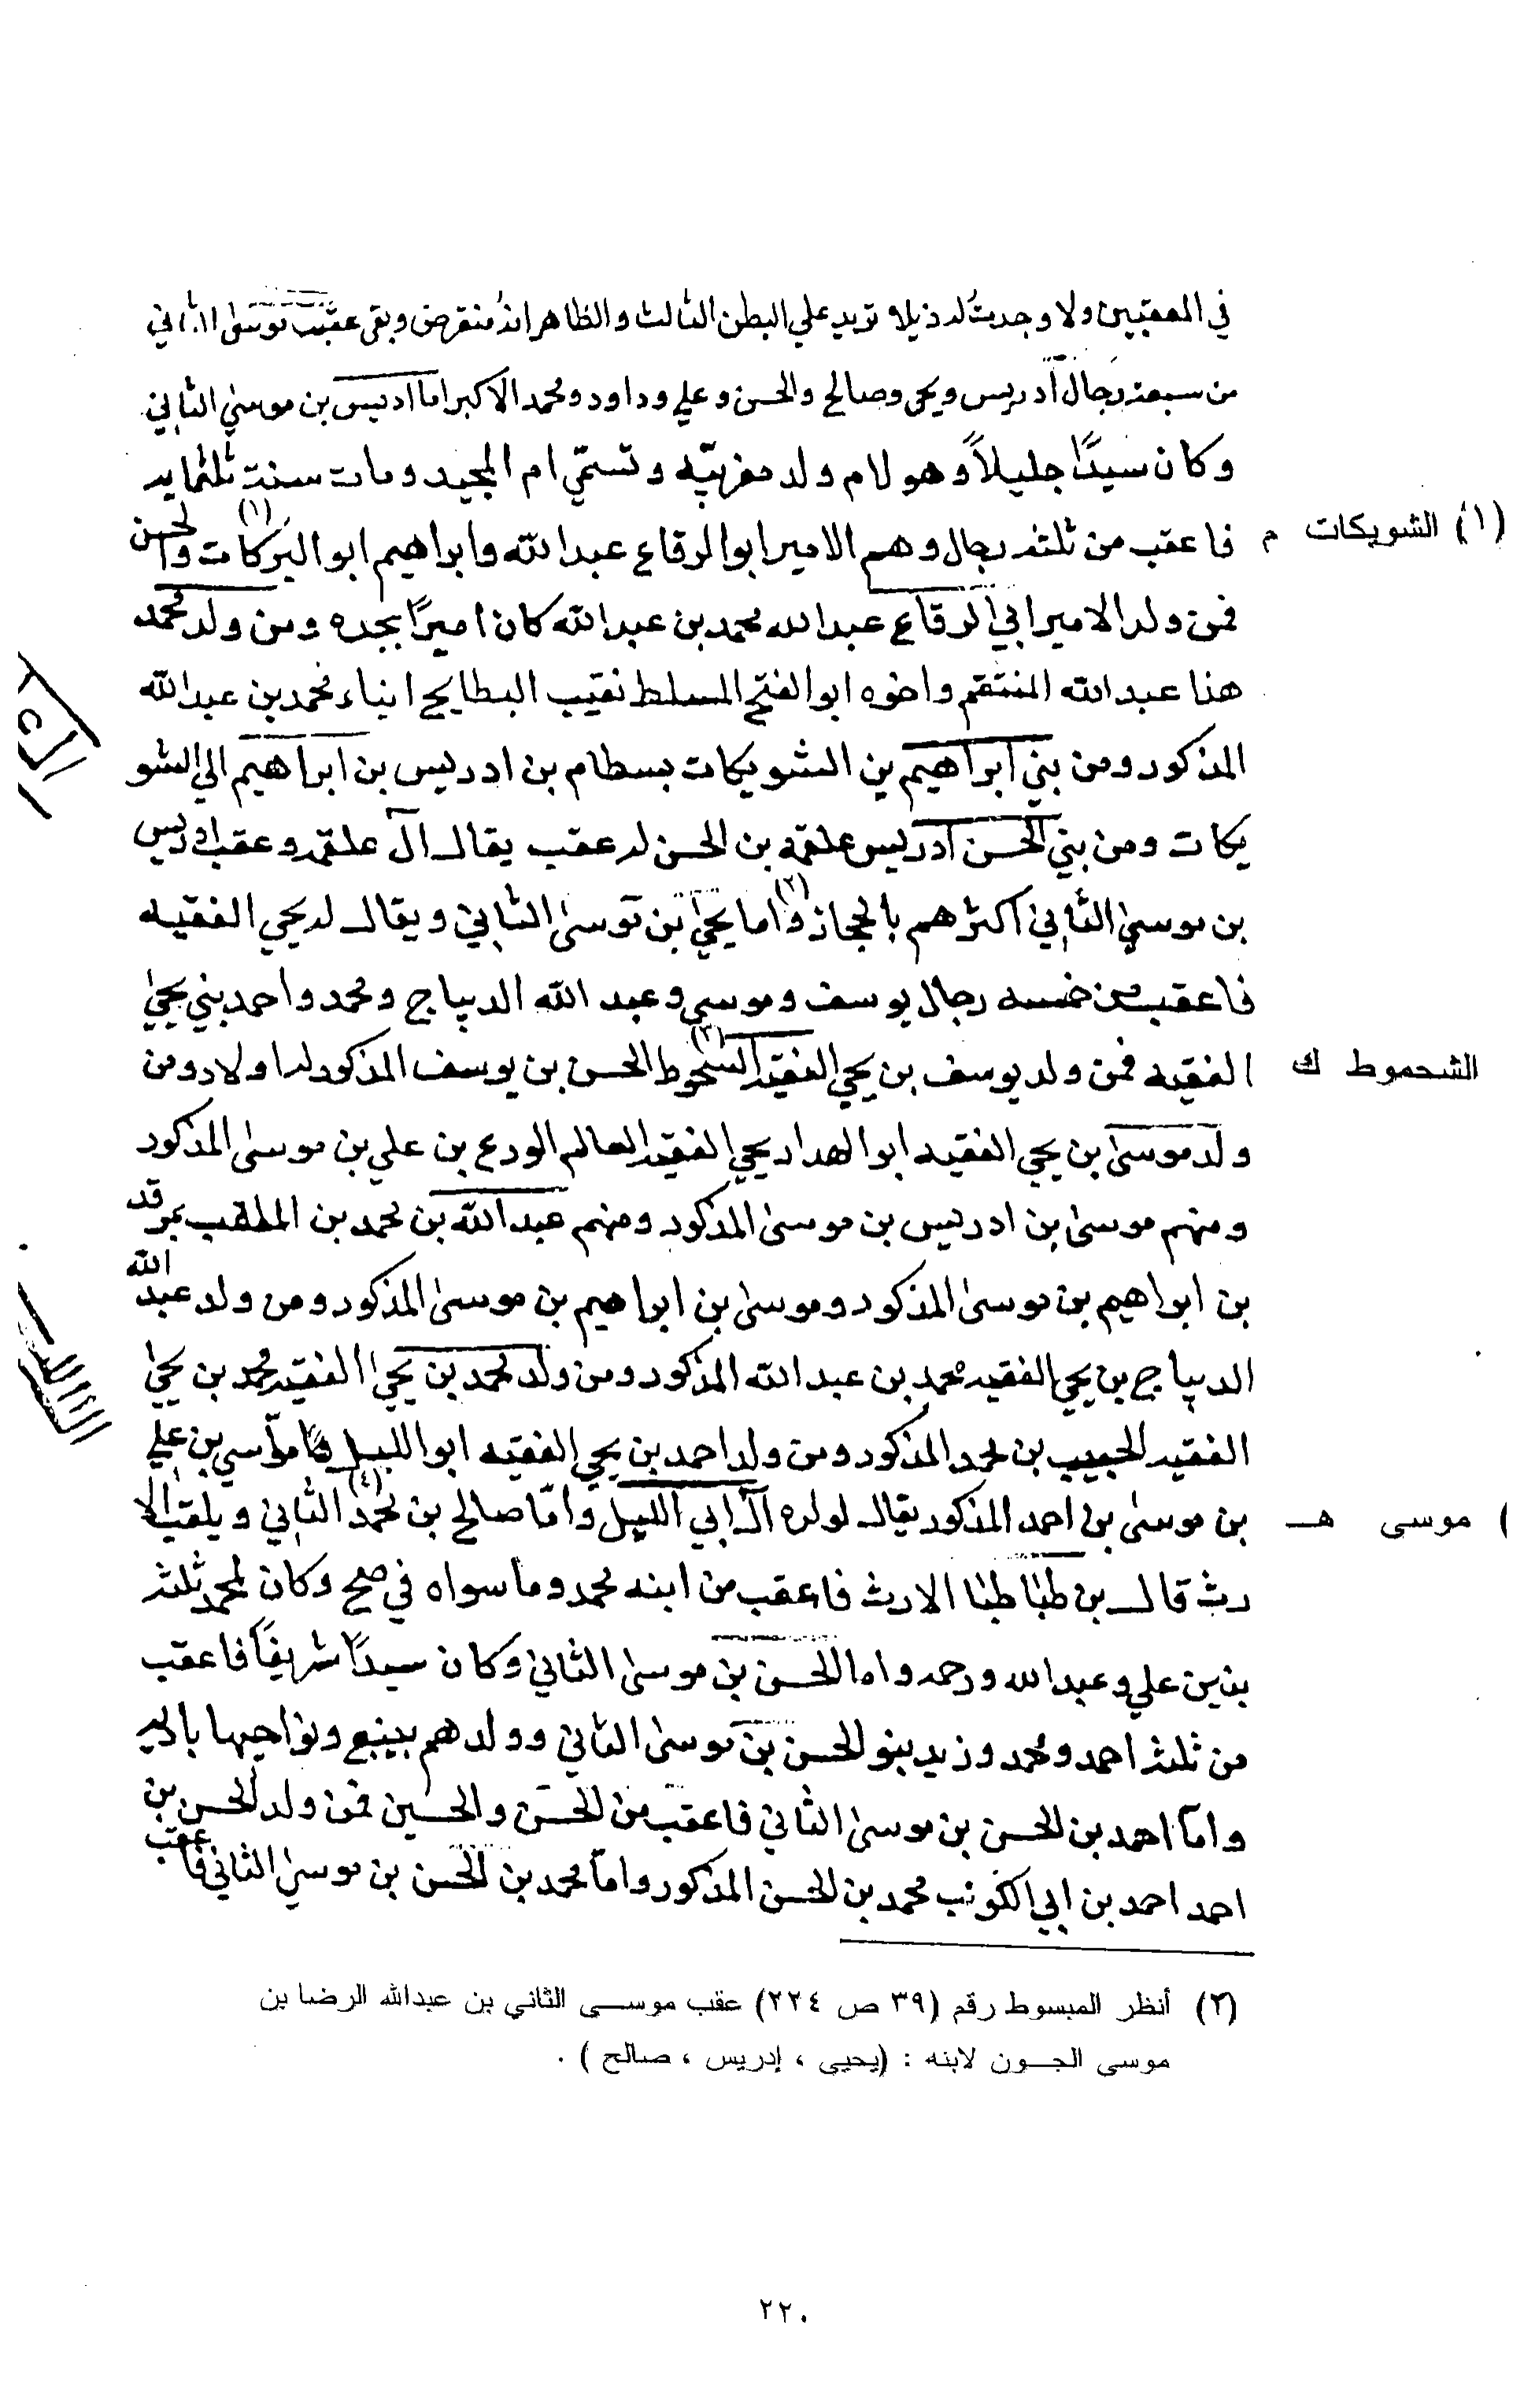 في المعقبين ولا وجدت له ذيلا يزيد علي البطن الثالث والظاهر انه منقرض وبقى عقب موسى الثاني
من سبعة رجال ادريس ويحيى وصالح والحسن وعلي وداود ومحمد الاكبر اما ادريس بن موسى الثاني
وكان سيدًا جليلاً وهو لام ولد مغربيّه وتسمّي ام المجيد ومات سنة ثلثمايه
(١) الشويكات م فاعقب من ثلثه رجال وهم الامير ابو الرقاع عبد الله وابراهيم ابو الشويكات (١) والحسن
فمن ولد الامير ابي الرقاع عبد الله محمد بن عبد الله كان اميرًا بجده ومن ولد محمد
هذا عبد الله المنتقم واخوه ابو الفتح المسلط نقيب البطايح ابناء محمد بن عبد الله
المذكور ومن بني ابراهيم بن الشويكات بسطام بن ادريس بن ابراهيم الي الشو
يكات ومن بني الحسن ادريس علقمه بن الحسن له عقب يقال ال علقمه وعقب ادريس
بن موسى الثاني اكثرهم بالحجاز (٢) واما يحيى بن موسى الثاني ويقال له يحيي الفقيه
فاعقب من خمسه رجال يوسف وموسى وعبد الله الديباج ومحمد واحمد بني يحيى
الشحموط ك الفقيه فمن ولد يوسف بن يحيي الفقيه الشحموط (٣) الحسن بن يوسف المذكور له اولاد ومن
ولد موسى بن يحيي الفقيه ابو الهدار يحيي الفقيه العالم الورع بن علي بن موسى المذكور
ومنهم موسى بن ادريس بن موسى المذكور ومنهم عبد الله بن محمد بن الملقب بمرقد
بن ابراهيم بن موسى المذكور وموسى بن ابراهيم بن موسى المذكور ومن ولد عبد الله
الديباج بن يحيي الفقيه محمد بن عبد الله المذكور ومن ولد محمد بن يحيى الفقيه محمد بن يحيى
الفقيه الحبيب بن محمد المذكور ومن ولد احمد بن يحيي الفقيه ابو الليل موسي بن علي
) موسى هـ بن موسى بن احمد المذكور يقال لولده ال ابي الليل وامّا صالح بن محمد (٤) الثاني ويلقب الا
رث قال بن طباطبا الارث فاعقب من ابنه محمد وما سواه في صح وكان لمحمد ثلثه
بنين علي وعبد الله ورحمه واما الحسن بن موسى الثاني وكان سيدًا شريفًا فاعقب
من ثلثه احمد ومحمد وزيد بنو الحسن بن موسى الثاني وولدهم بينبع ونواحيها باديه
وامّا احمد بن الحسن بن موسى الثاني فاعقب من الحسن والحسين فمن ولد الحسن بن
احمد احمد بن ابي محمد بن الحسن المذكور وامّا محمد بن الحسن بن موسى الثاني فاعقب
(٢) أنظر المبسوط رقم (٣٩ ص ٢٢٤) عقب موسى الثاني بن عبدالله الرضا بن
موسى الجون لابنه : (يحيى ، إدريس ، صالح ) .
٢٢٠